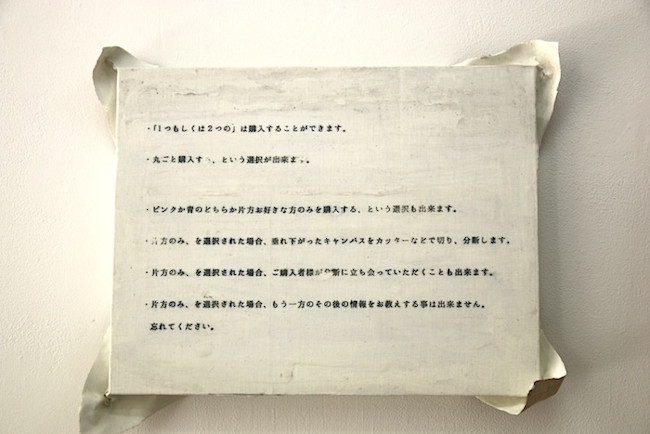 ・「1つもしくは2つの」は購入することができます。
・丸ごと購入す、という選択が出来ま。
・ピンクか青のどちらか片方お好きな方のみを購入する、という選択も出来ます。
・片方のみ、を選択された場合、垂れ下がったキャンバスをカッターなどで切り、分断します。
・片方のみ、を選択された場合、ご購入者様が断に立ち会っていただくことも出来ます。
・片方のみ、を選択された場合、もう一方のその後の情報をお教えする事は出来ません。
忘れてください。